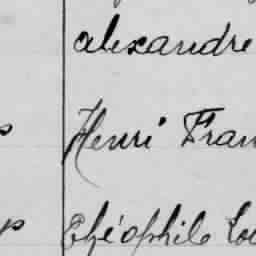 alexandre
Henri Fran
Théophile Lou